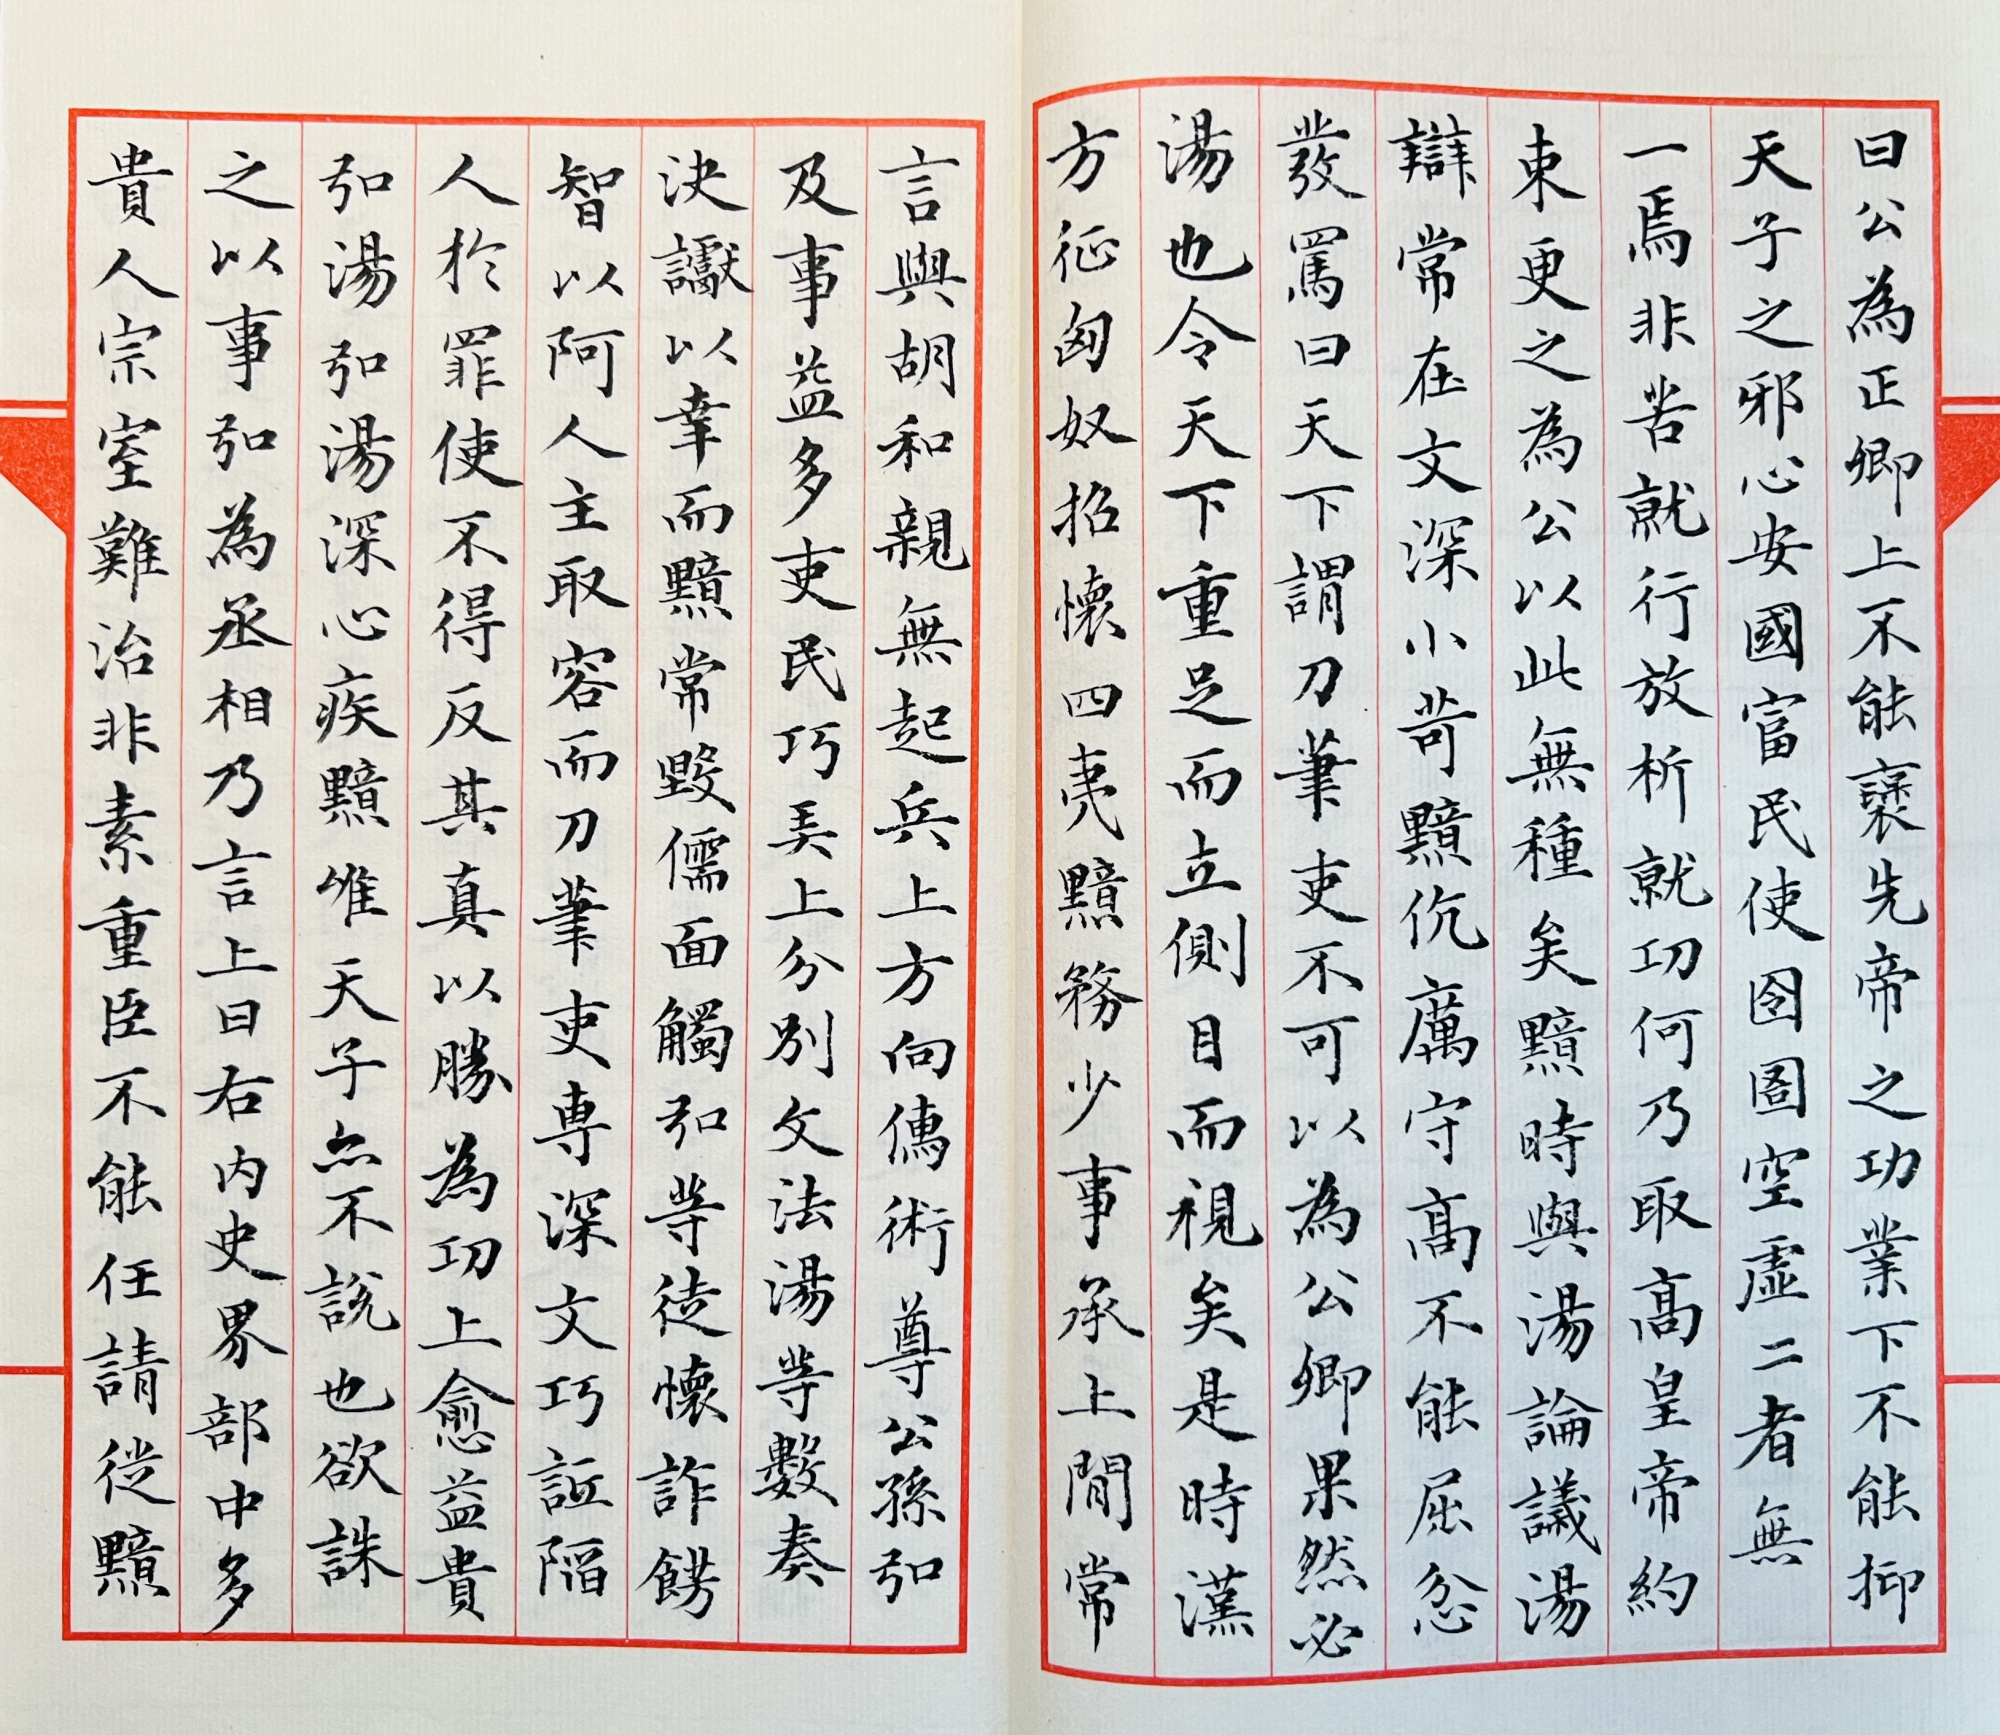 曰公為正卿上不能襃先帝之功業下不能抑
天子之邪心安國富民使囹圄空虛二者無
一焉非苦就行放析就功何乃取高皇帝約
束更之為公以此無種矣黯時與湯論議湯
辯常在文深小苛黯伉厲守高不能屈忿
發罵曰天下謂刀筆吏不可以為公卿果然必
湯也令天下重足而立側目而視矣是時漢
方征匈奴招懷四夷黯務少事承上閒常
言與胡和親無起兵上方向儒術尊公孫弘
及事益多吏民巧弄上分別文法湯等數奏
決讞以幸而黯常毀儒面觸弘等徒懷詐飾
智以阿人主取容而刀筆吏專深文巧詆陷
人於罪使不得反其真以勝為功上愈益貴
弘湯弘湯深心疾黯唯天子亦不說也欲誅
之以事弘為丞相乃言上曰右內史界部中多
貴人宗室難治非素重臣不能任請從黯